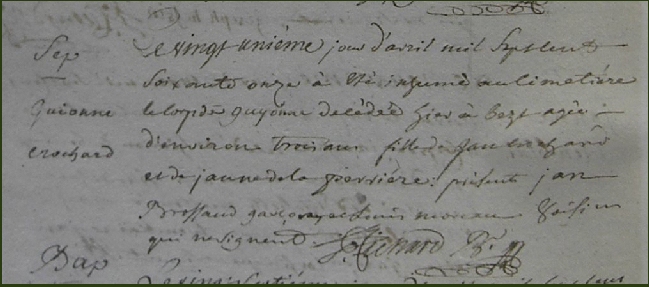 Sep
Guionne
crochard
Le vingt unième jour d'avril mil Sept cent
soixante onze à été inhumé au cimetière
le corps de guyonne décédée hier à agée
d'environ trois ans fille de jan crochard
et de janne de la perrière : présents jan
Brossaud et moreau Voisins
qui ne signent. Richard
Bap